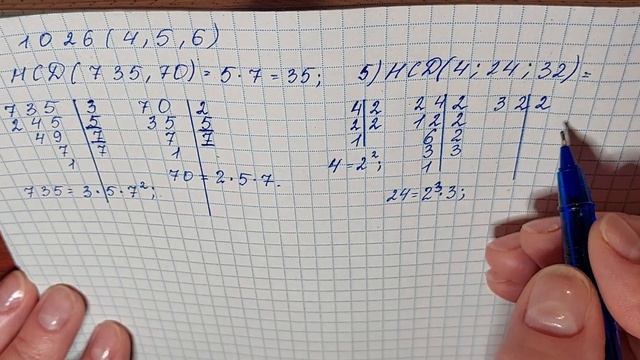 1026(4,5,6)
НСД(735,70)=5·7=35;
735 | 3
245 | 5
49 | 7
7 | 7
1
735=3·5·7²;
70 | 2
35 | 5
7 | 7
1
70=2·5·7.
5) НСД(4;24;32)=
4 | 2
2 | 2
1
4=2²;
24 | 2
12 | 2
6 | 2
3 | 3
1
24=2³·3;
32 | 2